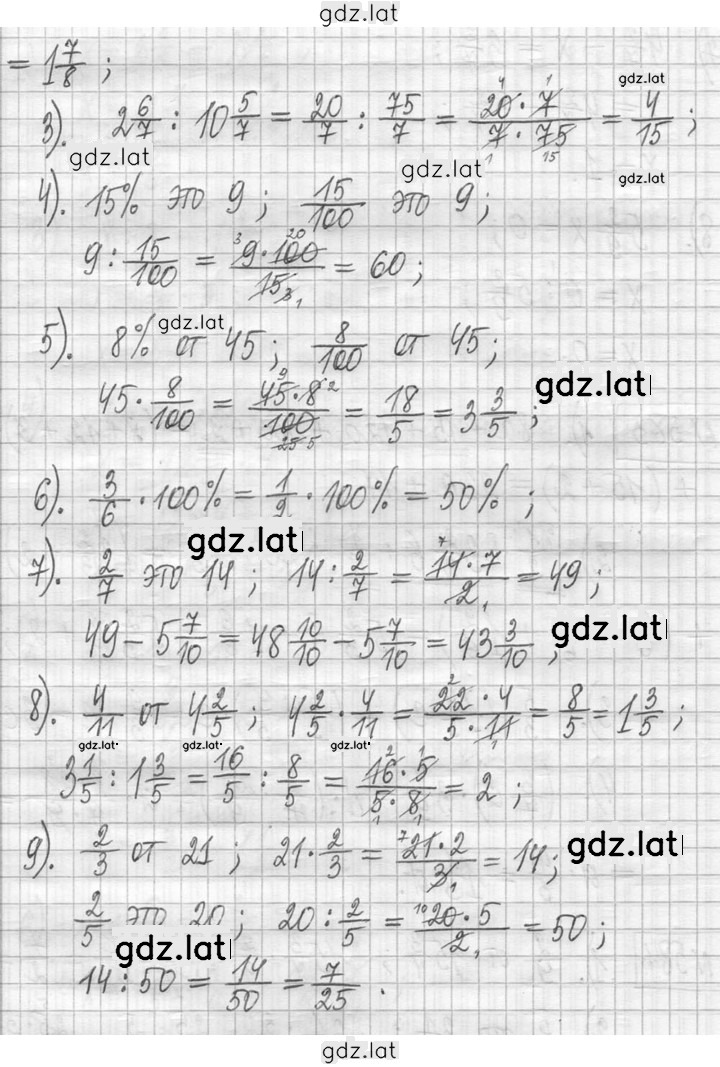 gdz.lat
= 1 7/8 ;
gdz.lat
3). 2 6/7 : 10 5/7 = 20/7 : 75/7 = 20·7/7·75 = 4/15 ;
gdz.lat gdz.lat gdz.lat
4). 15% это 9 ; 15/100 это 9 ;
9 : 15/100 = 9·100/15 = 60 ;
gdz.lat
5). 8% от 45 ; 8/100 от 45 ;
gdz.lat
45 · 8/100 = 45·8/100 = 18/5 = 3 3/5 ;
6). 3/6 · 100% = 1/2 · 100% = 50% ;
gdz.lat
7). 2/7 это 14 ; 14 : 2/7 = 14·7/2 = 49 ;
49 − 5 7/10 = 48 10/10 − 5 7/10 = 43 3/10 ;
gdz.lat
8). 4/11 от 4 2/5 ; 4 2/5 · 4/11 = 22·4/5·11 = 8/5 = 1 3/5 ;
gdz.lat gdz.lat gdz.lat
3 1/5 : 1 3/5 = 16/5 : 8/5 = 16·5/5·8 = 2 ;
9). 2/3 от 21 ; 21 · 2/3 = 21·2/3 = 14 ;
gdz.lat
2/5 это 20 ; 20 : 2/5 = 20·5/2 = 50 ;
gdz.lat
14 : 50 = 14/50 = 7/25 .
gdz.lat